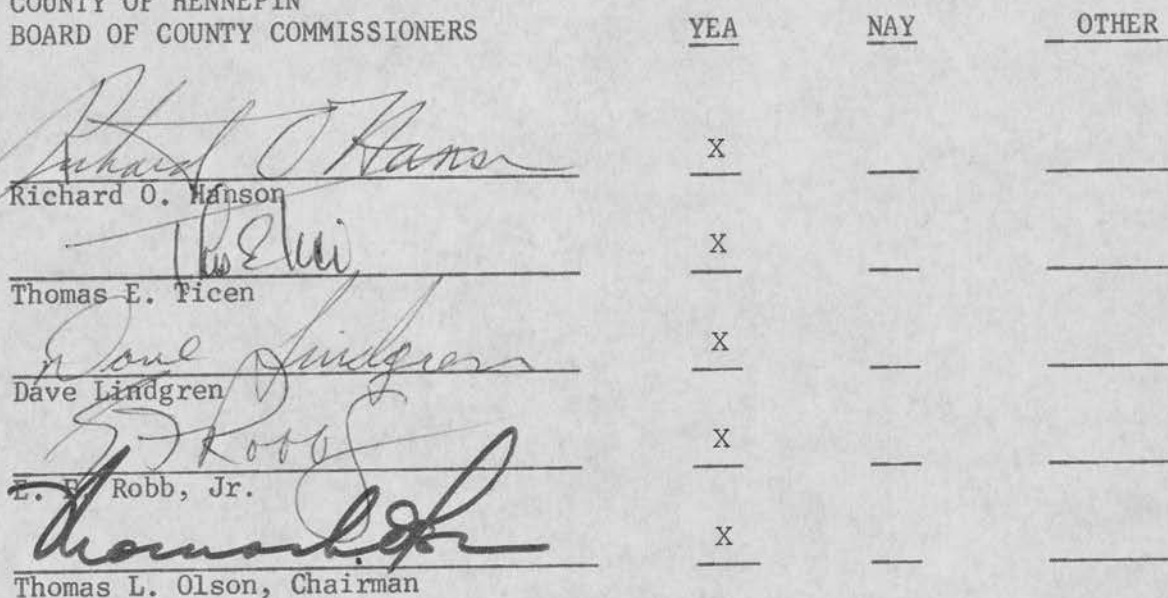 COUNTY OF HENNEPIN
BOARD OF COUNTY COMMISSIONERS YEA NAY OTHER
Richard O Hanson X
Richard O. Hanson
X
Thomas E. Ticen
Dave Lindgren X
Dave Lindgren
E. F. Robb Jr X
E. F. Robb, Jr.
Thomas L. Olson X
Thomas L. Olson, Chairman